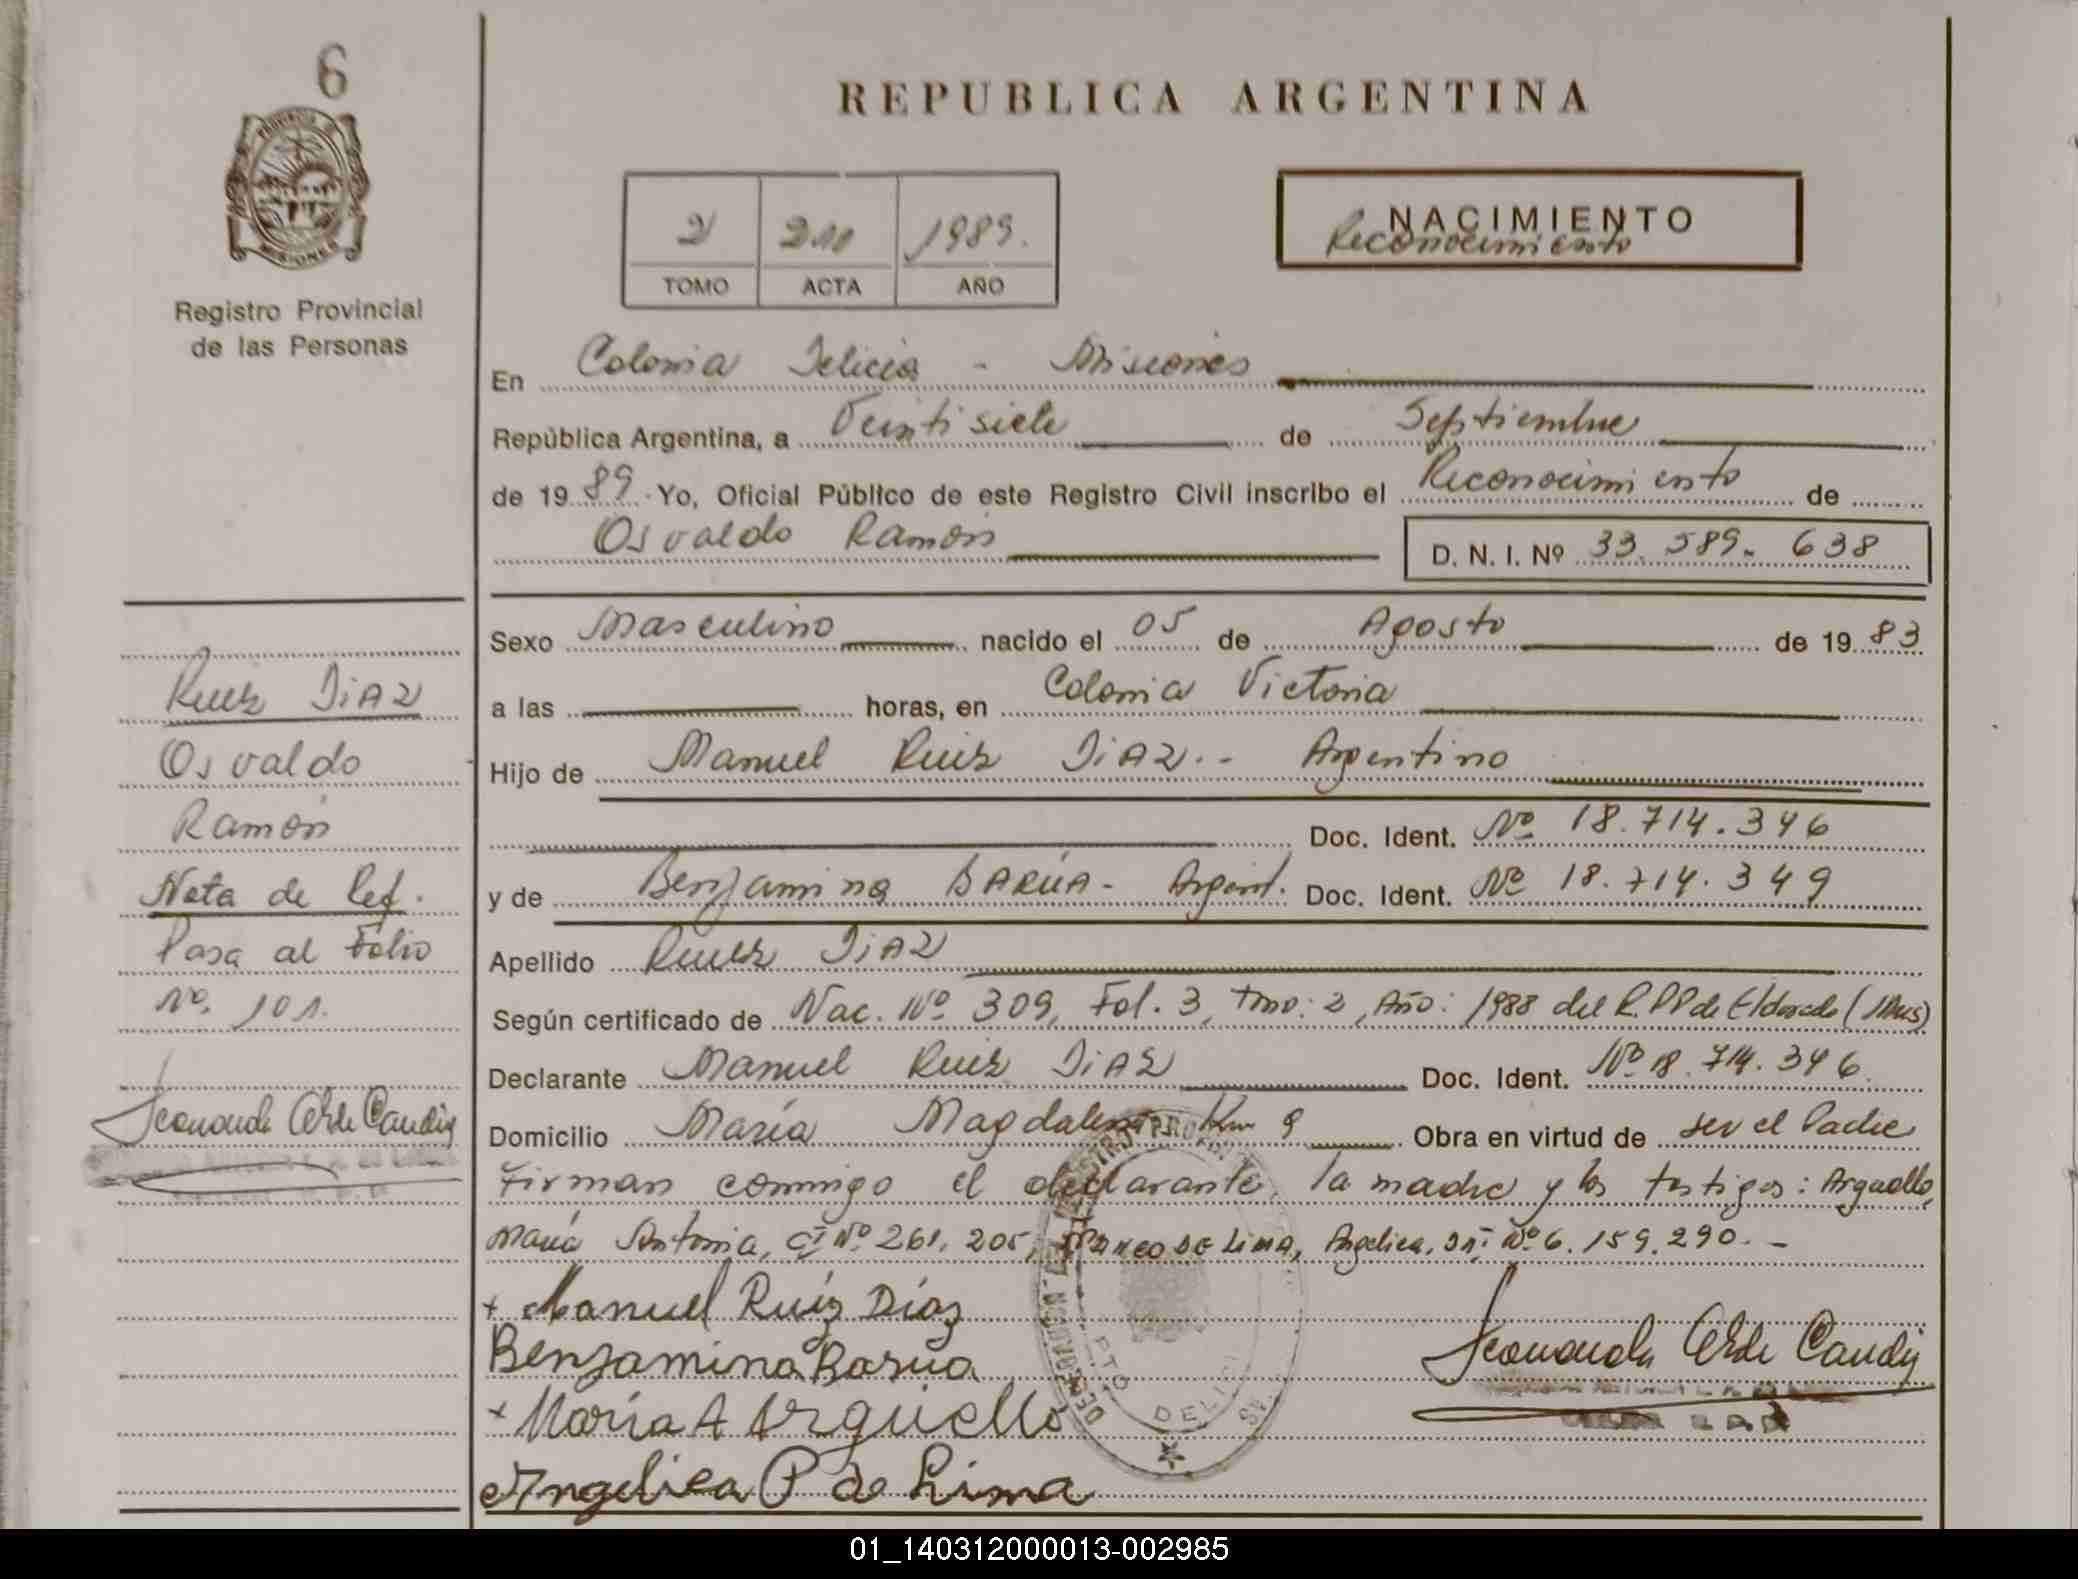 6
REPUBLICA ARGENTINA
PROVINCIA DE
MISIONES
Registro Provincial
de las Personas
2 211 1989.
TOMO ACTA AÑO
NACIMIENTO
Reconocimiento
En Colonia Delicia - Misiones
República Argentina, a Veintisiete de Septiembre
de 1989 Yo, Oficial Público de este Registro Civil inscribo el Reconocimiento de
Osvaldo Ramón D. N. I. Nº 33.589.638
Sexo Masculino nacido el 05 de Agosto de 1983
a las horas, en Colonia Victoria
Hijo de Manuel Ruiz DiAZ.- Argentino
Doc. Ident. Nº 18.714.346
y de Benjamina BARÚA- Argent. Doc. Ident. Nº 18.714.349
Apellido Ruiz DiAZ
Según certificado de Nac. Nº 309, Fol. 3, Tmo: 2, Año: 1988 del R.PP de Eldorado (Mnes)
Declarante Manuel Ruiz DiAZ Doc. Ident. Nº 18.714.346
Domicilio María Magdalena Km 9 Obra en virtud de ser el Padre
Firman conmigo el declarante, la madre y los testigos: Arguello,
María Antonia, CI Nº 261.205, DE LIMA, Angelica, DNI Nº 6.159.290.-
+ Manuel Ruíz Díaz
Benjamina Barua
+ María A Arguello
Angelica P de Lima
DELEGACION
PTO DELICI
Ruiz DiAZ
Osvaldo
Ramón
Nota de Ref.
Pasa al Folio
Nº. 101.
01_140312000013-002985